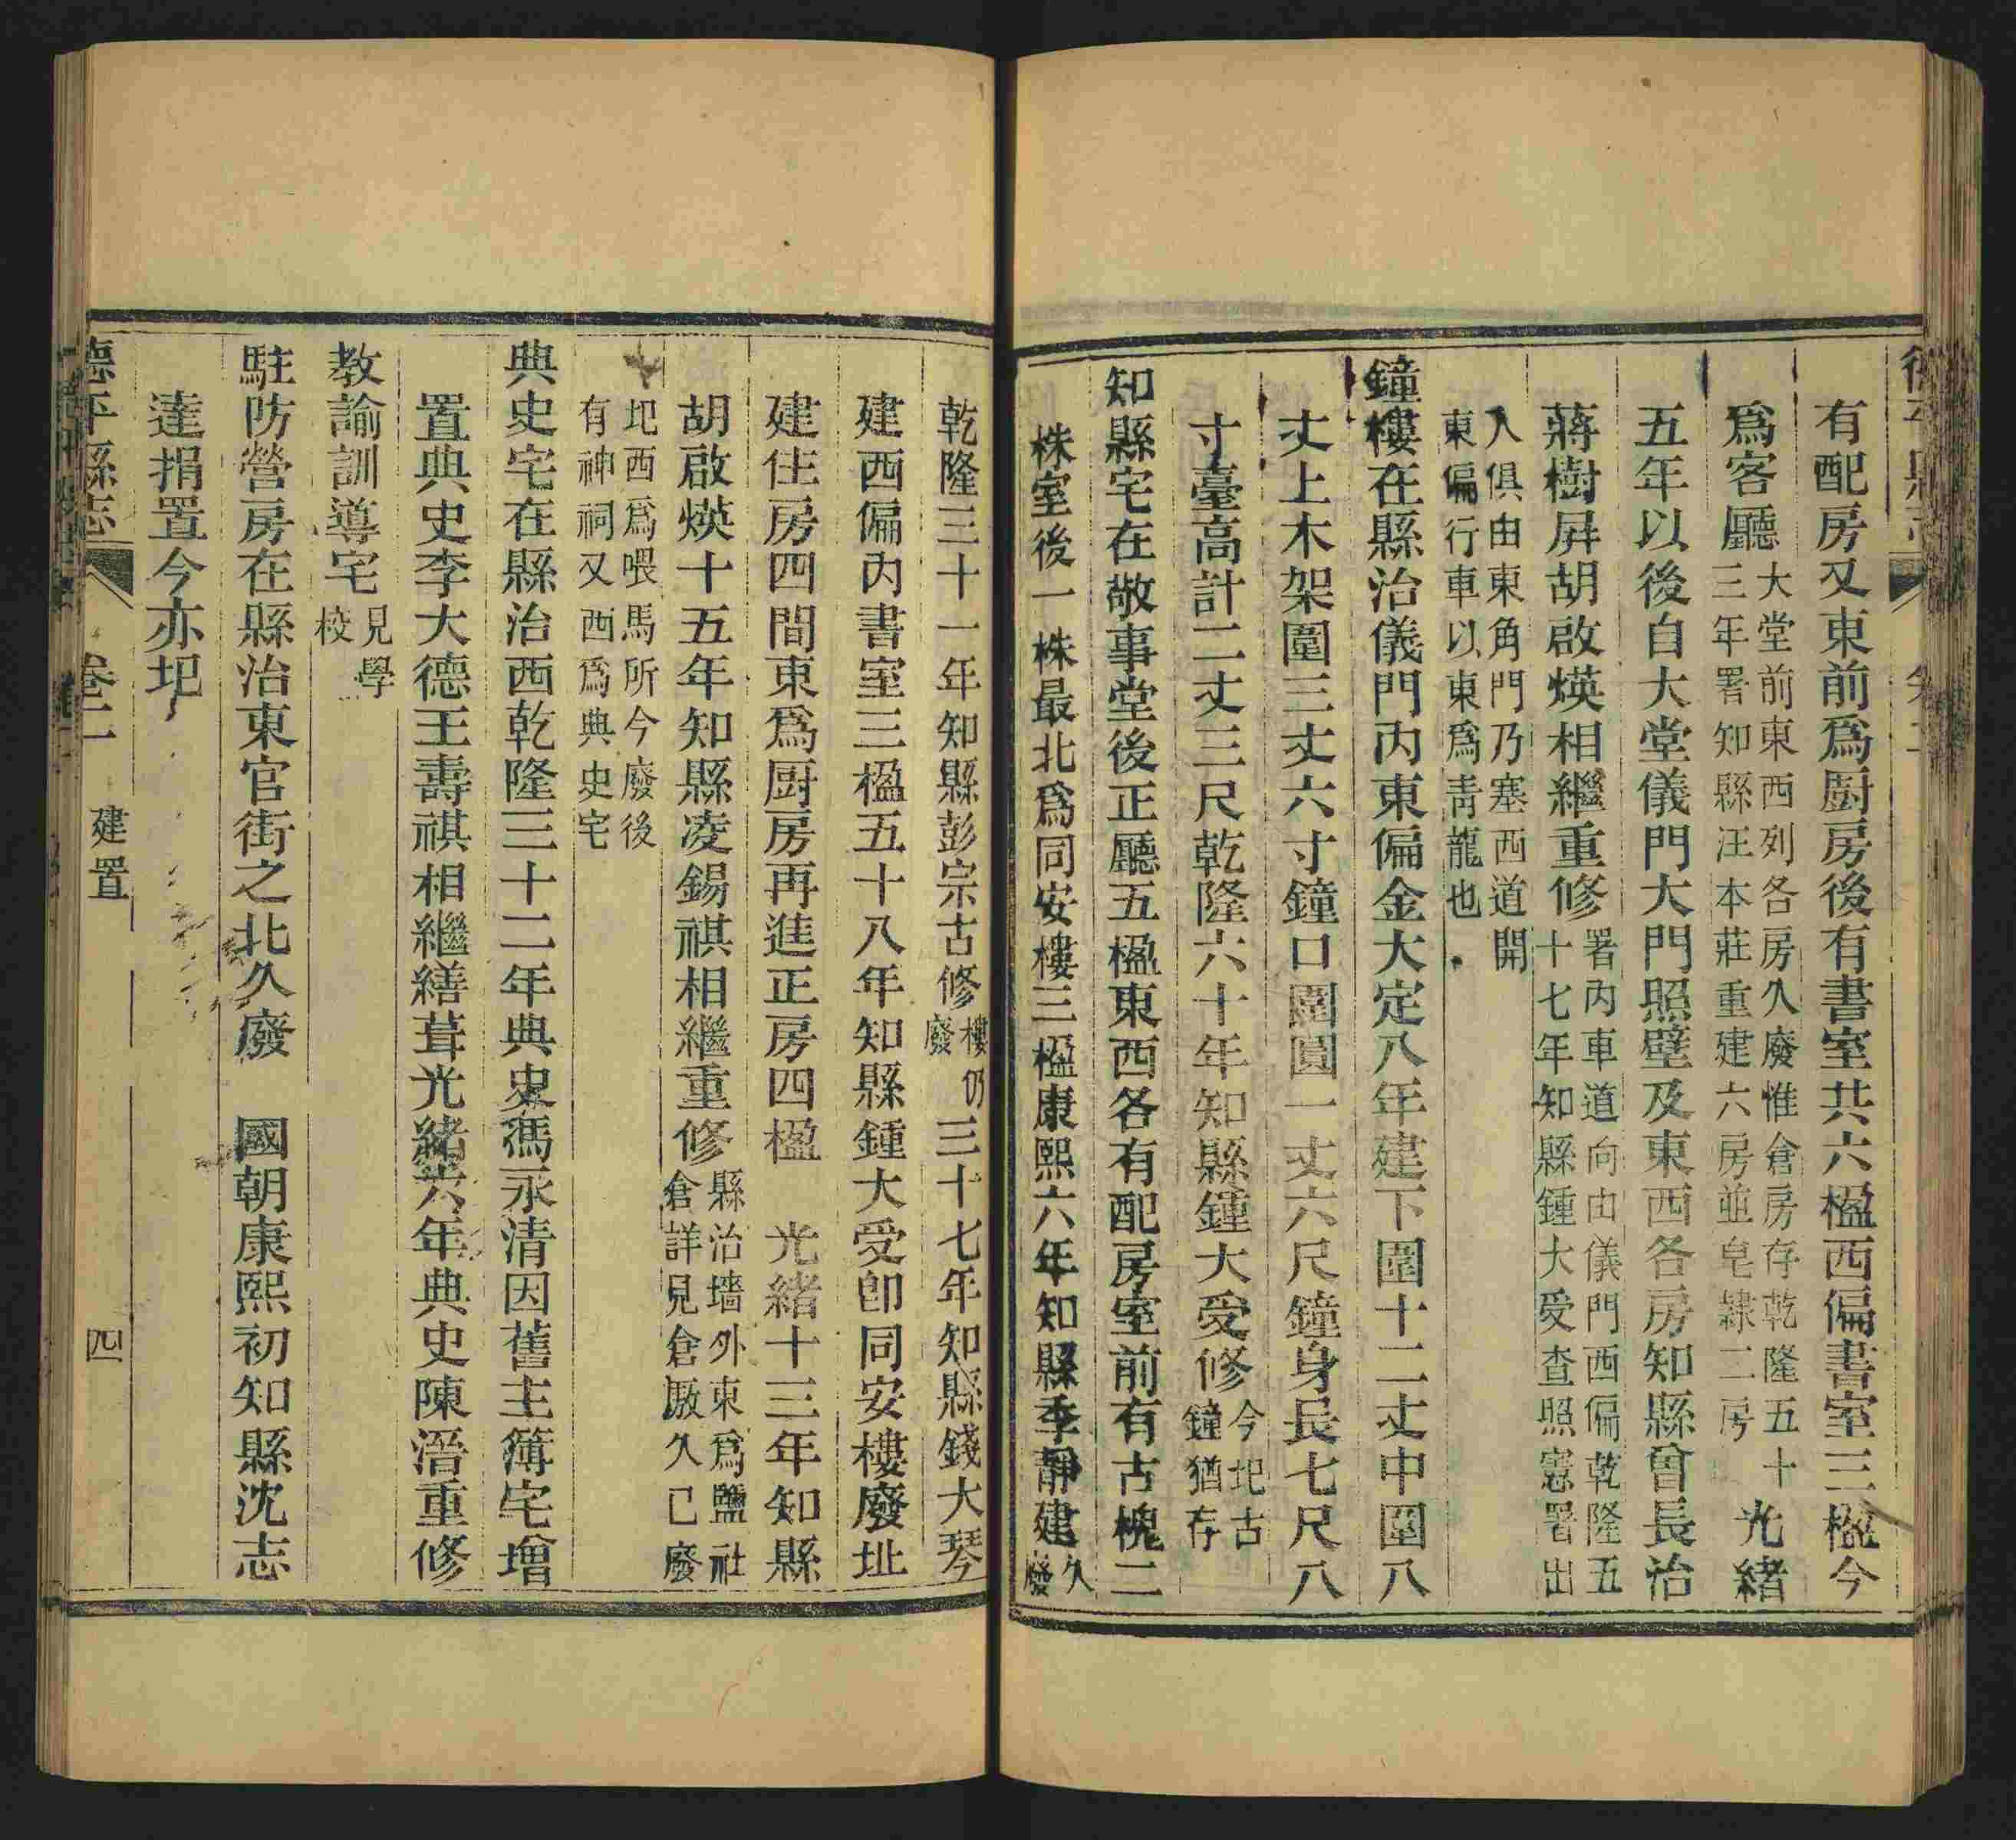 有配房又東前爲厨房後有書室共六楹西偏書室三楹今
爲客廳大堂前東西列各房久廢惟倉房存乾隆五十三年署知縣汪本莊重建六房並皂隸二房光緒
五年以後自大堂儀門大門照壁及東西各房知縣曾長治
蔣樹屏胡啟煐相繼重修署內車道向由儀門西偏乾隆五十七年知縣鍾大受查照憲署出
入俱由東角門乃塞西道開東偏行車以東爲青龍也
鐘樓在縣治儀門內東偏金大定八年建下圍十二丈中圍八
丈上木架圍三丈六寸鐘口圍圓一丈六尺鐘身長七尺八
寸臺高計二丈三尺乾隆六十年知縣鍾大受修今圯古鐘猶存
知縣宅在敬事堂後正廳五楹東西各有配房室前有古槐二
株室後一株最北爲同安樓三楹康熙六年知縣季靜建久廢
乾隆三十一年知縣彭宗古修樓仍廢三十七年知縣錢大琴
建西偏內書室三楹五十八年知縣鍾大受卽同安樓廢址
建住房四間東爲厨房再進正房四楹 光緒十三年知縣
胡啟煐十五年知縣凌錫祺相繼重修縣治墻外東爲鹽社倉詳見倉厫久已廢
圯西爲喂馬所今廢後有神祠又西爲典史宅
典史宅在縣治西乾隆三十二年典史馮永清因舊主簿宅增
置典史李大德王壽祺相繼繕葺光緒六年典史陳溍重修
教諭訓導宅見學校
駐防營房在縣治東官街之北久廢 國朝康熙初知縣沈志
達捐置今亦圯
德平縣志 卷二 建置 四